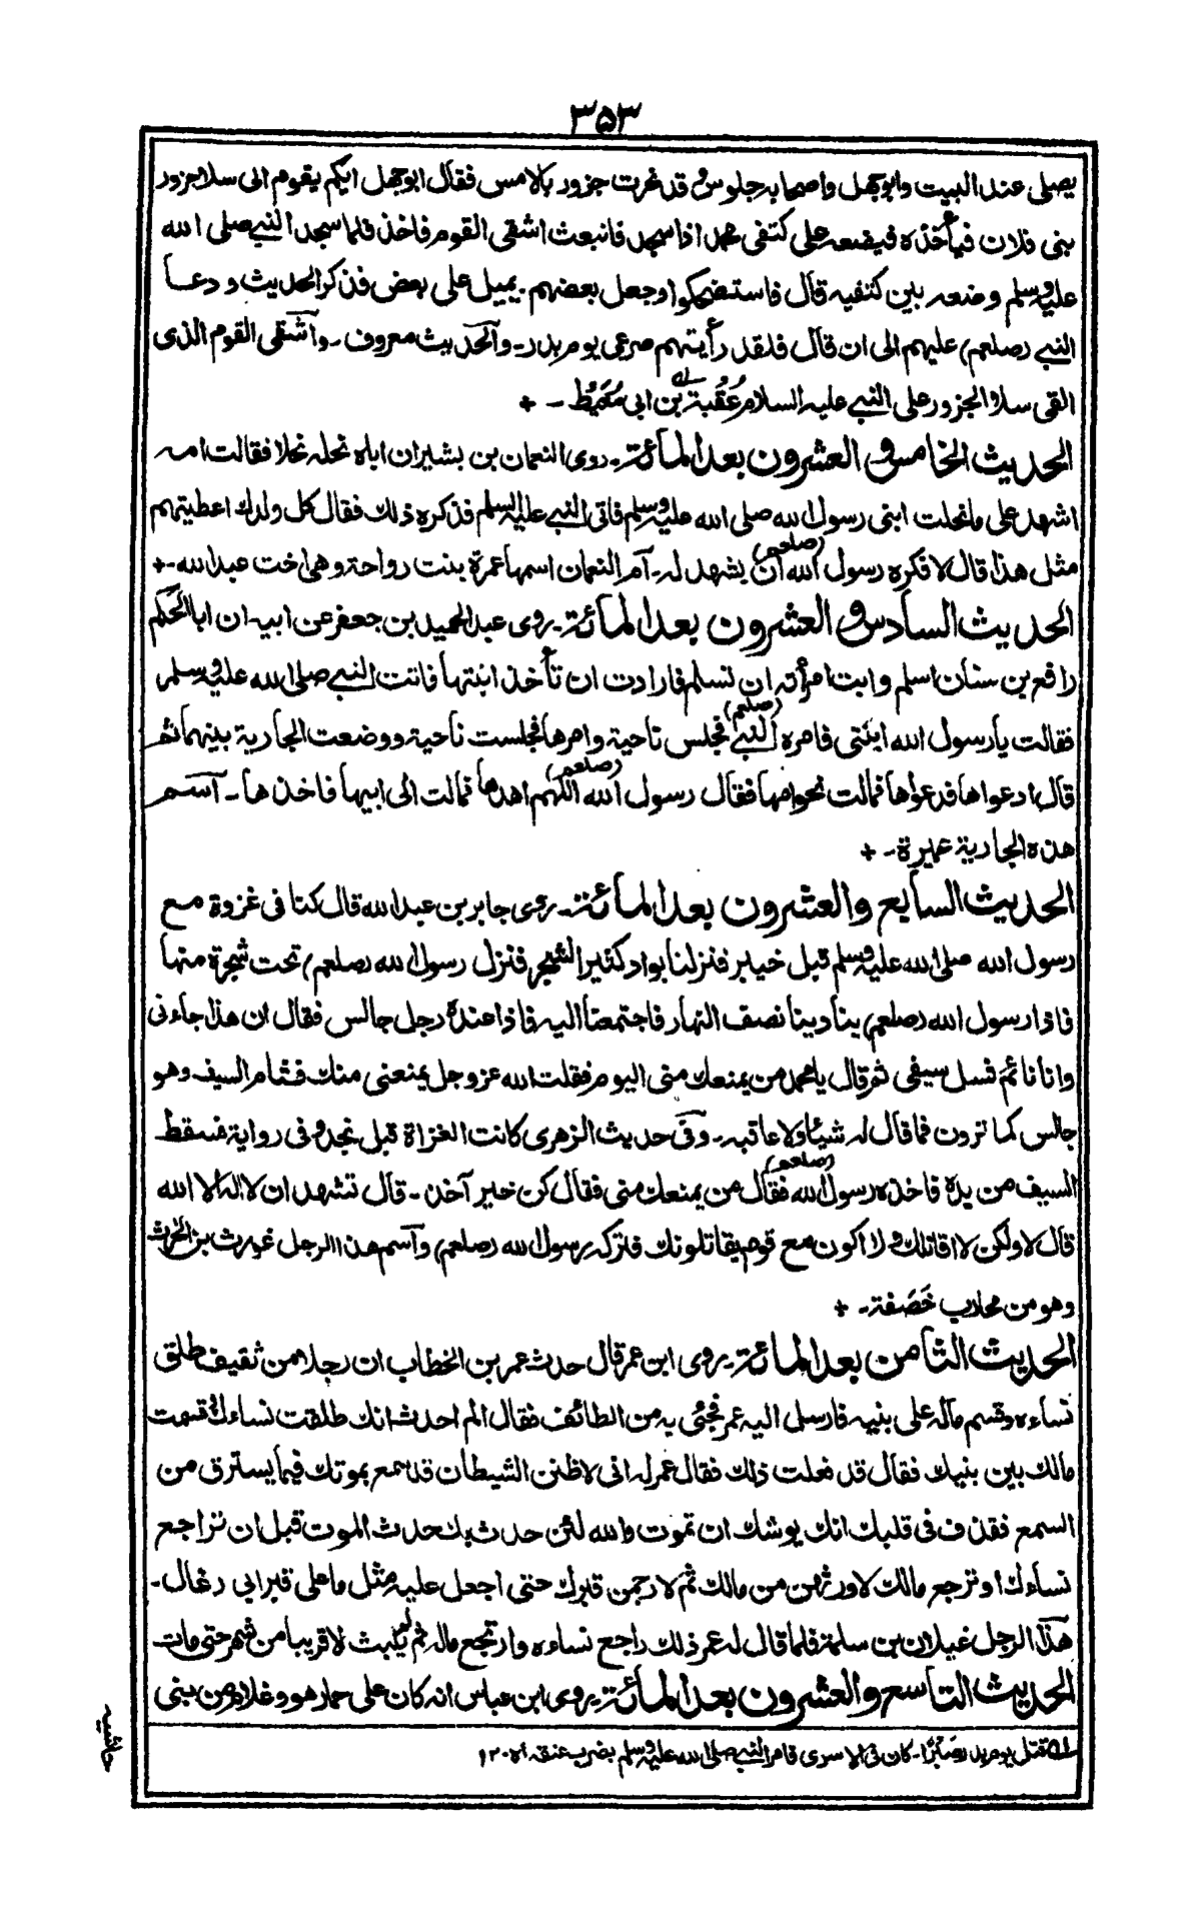 ۳۵۳
يصلى عند البيت وابوجهل واصحابه جلوس و قد نحرت جزور بالامس فقال ابوجهل ايكم يقوم الى سلا جزور
بنى فلان فيأخذه فيضعه على كتفى محمد اذا سجد فانبعث اشقى القوم فاخذ فلما سجد النبي صلى الله
عليه وسلم وضعه بين كتفيه قال فاستضحكوا وجعل بعضهم يميل على بعض فذكر الحديث و دعا
النبي (صلعم) عليهم الى ان قال فلقد رأيتهم صرعى يوم بدر - والحديث معروف - واشقى القوم الذى
القى سلا الجزور على النبي عليه السلام عُقبة بن ابى مُعَيط - +
الحديث الخامس و العشرون بعد المائة - روى النعمان بن بشير ان اباه نحله نحلا فقالت امه
اشهد على ما نحلت ابنى رسول الله صلى الله عليه وسلم فاتى النبي عليه السلم فذكره ذلك فقال كل ولدك اعطيتهم
مثل هذا قال لا فكره رسول الله (صلعم) ان يشهد له - آم النعمان اسمها عمرة بنت رواحة وهى اخت عبد الله - +
الحديث السادس و العشرون بعد المائة - روى عبد الحميد بن جعفر عن ابيه ان ابا الحَكَم
رافع بن سنان اسلم وابت امرأته ان تسلم فارادت ان تأخذ ابنتها فاتت النبي صلى الله عليه وسلم
فقالت يا رسول الله ابنتى فامره النبي (صلعم) فجلس ناحية وامرها فجلست ناحية ووضعت الجارية بينهما ثم
قال ادعواها فدعواها فمالت نحو امها فقال رسول الله (صلعم) اللهم اهدها فمالت الى ابيها فاخذها - آسم
هذه الجارية عميرة - +
الحديث السابع والعشرون بعد المائة - روى جابر بن عبد الله قال كنا فى غزوة مع
رسول الله صلى الله عليه وسلم قبل خيبر فنزلنا بواد كثير الشجر فنزل رسول الله (صلعم) تحت شجرة منها
فاذا رسول الله (صلعم) ينادينا نصف النهار فاجتمعنا اليه فاذا عنده رجل جالس فقال ان هذا جاءنى
وانا نائم فسل سيفى ثم قال يا محمد من يمنعك منى اليوم فقلت الله عزوجل يمنعنى منك فشام السيف وهو
جالس كما ترون فما قال له شيئا ولا عاقبه - وفى حديث الزهرى كانت الغزاة قبل نجد وفى رواية فسقط
السيف من يده فاخذه رسول الله (صلعم) فقال من يمنعك منى فقال كن خير آخذ - قال تشهد ان لا اله الا الله
قال لا ولكن لا اقاتلك ولا اكون مع قوم يقاتلونك فتركه رسول الله (صلعم) وآسم هذا الرجل غورث بن الحرث
وهو من محارب خَصَفة - +
الحديث الثامن بعد المائة - روى ابن عمر قال حدث عمر بن الخطاب ان رجلا من ثقيف طلق
نساءه وقسم ماله على بنيه فارسل اليه عمر فجئ به من الطائف فقال الم احدث انك طلقت نساءك وقسمت
مالك بين بنيك فقال قد فعلت ذلك فقال عمر له انى لاظنن الشيطان قد سمع بموتك فيما يسترق من
السمع فقذف فى قلبك انك يوشك ان تموت والله لئن حدث بك حدث الموت قبل ان تراجع
نساءك او ترجع مالك لاورثهن من مالك ثم لارجمن قبرك حتى اجعل عليه مثل ما على قبر ابى رغال -
هذا الرجل غيلان بن سلمة فلما قال له عمر ذلك راجع نساءه وارتجع ماله ثم لم يلبث لا قريبا من شهر حتى مات
الحديث التاسع والعشرون بعد المائة - روى ابن عباس انه كان على حمار هو وغلام من بنى
حاشيه
له قتل يوم بدر صَبْرًا - كان فى الاسرى فامر النبي صلى الله عليه وسلم بضرب عنقه اه ١٢